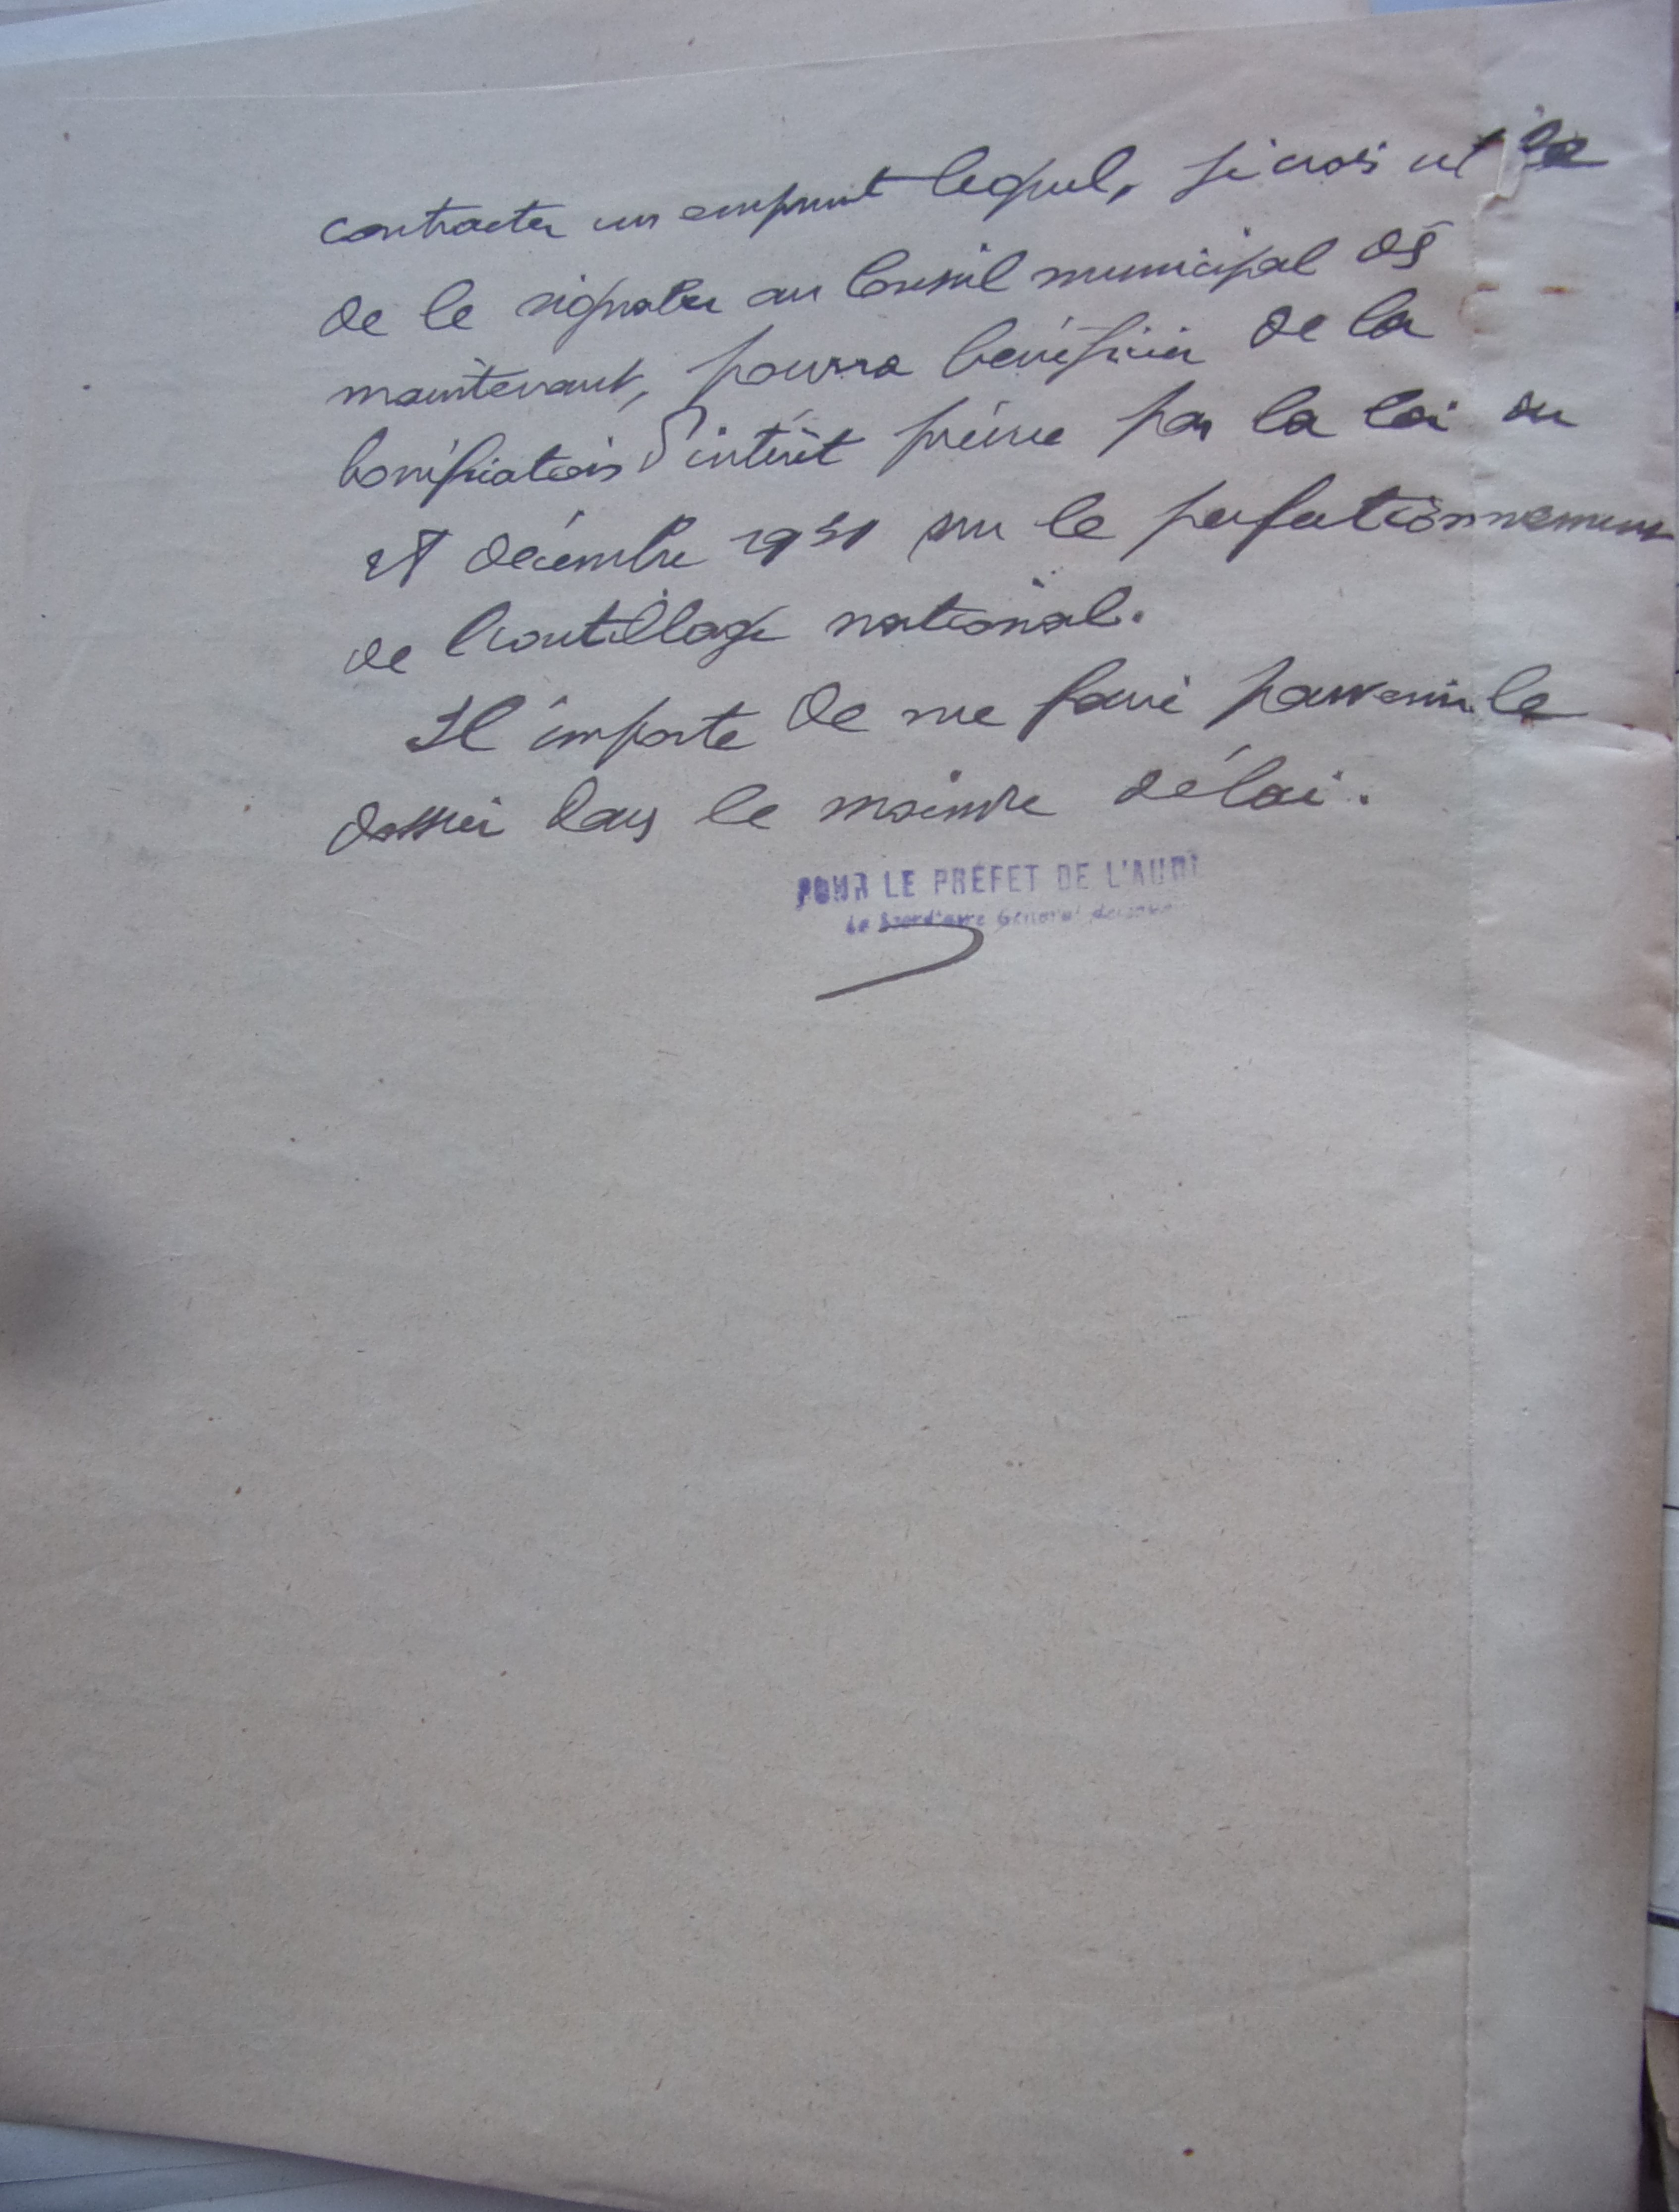 contracter un emprunt lequel, je crois utile
de le signaler au Conseil municipal dès
maintenant, pourra bénéficier de la
bonification d'intérêt prévue par la loi du
28 décembre 1931 sur le perfectionnement
de l'outillage national.
Il importe de me faire parvenir le
dossier dans le moindre délai.
POUR LE PRÉFET DE L'AUDE
Le Secrétaire Général